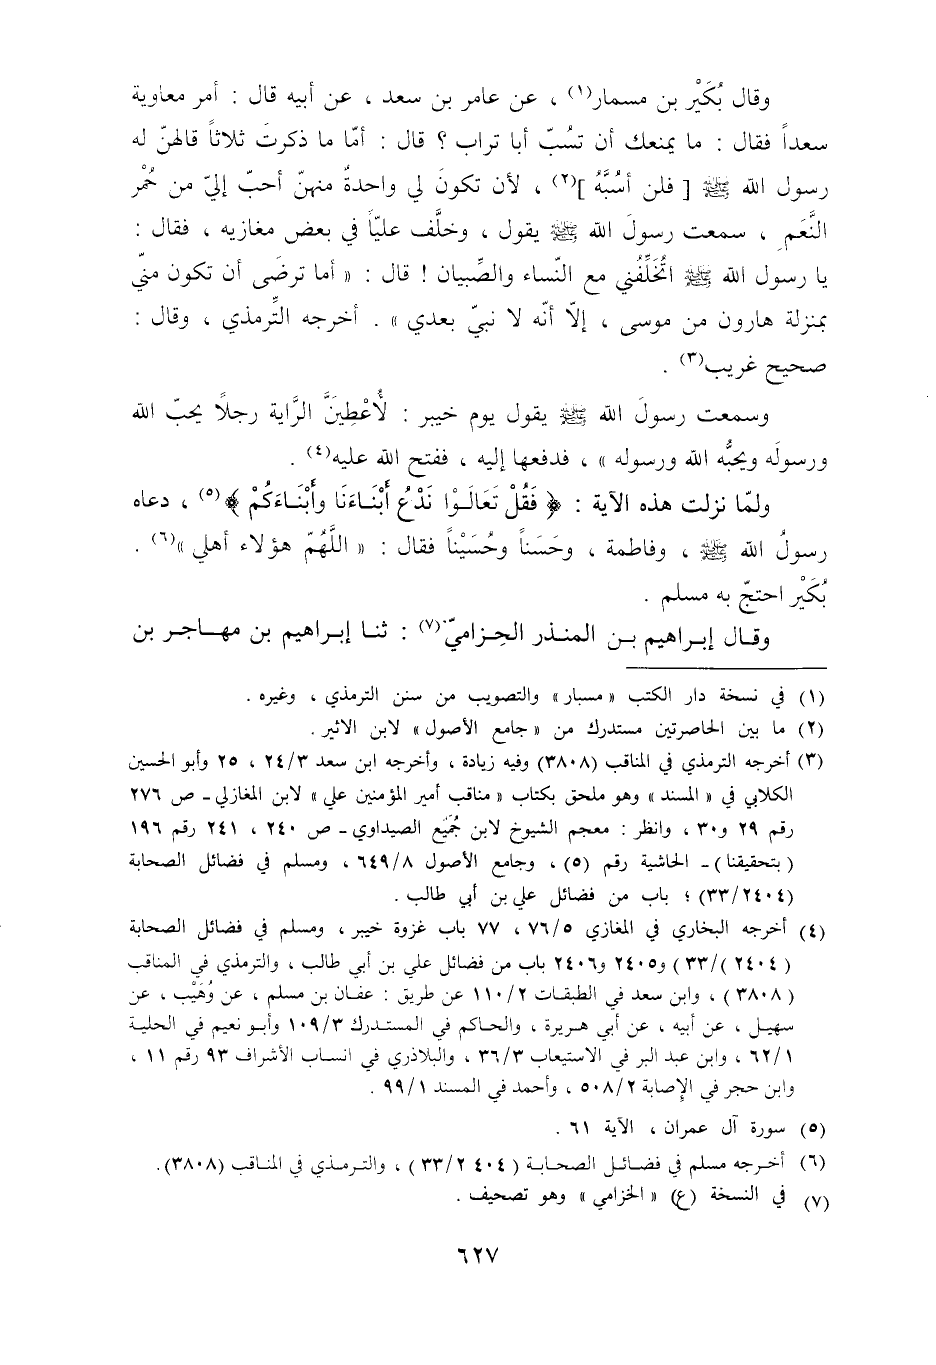 وقال بُكَيْر بن مسمار(١) ، عن عامر بن سعد ، عن أبيه قال : أمر معاوية
سعداً فقال : ما يمنعك أن تسُبّ أبا تراب ؟ قال : أمّا ما ذكرتَ ثلاثاً قالهنّ له
رسول الله ﷺ [ فلن أسُبَّهُ ](٢) ، لأن تكونَ لي واحدةٌ منهنّ أحبّ إليّ من حُمْر
النَّعَمِ ، سمعت رسولَ الله ﷺ يقول ، وخلَّف عليّاً في بعض مغازيه ، فقال :
يا رسول الله ﷺ اتُخَلِّفُني مع النّساء والصِّبيان ! قال : « أما ترضَى أن تكون منّي
بمنزلة هارون من موسى ، إلاّ أنّه لا نبيّ بعدي » . أخرجه التِّرمذي ، وقال :
صحيح غريب(٣) .
وسمعت رسولَ الله ﷺ يقول يوم خيبر : لأُعْطِيَنَّ الرَّاية رجلاً يحبّ الله
ورسولَه ويحبُّه الله ورسوله » ، فدفعها إليه ، ففتح الله عليه(٤) .
ولمّا نزلت هذه الآية : ﴿ فَقُلْ تَعَالَوْا نَدْعُ أَبْنَاءَنَا وأَبْنَاءَكُمْ ﴾(٥) ، دعاه
رسولُ الله ﷺ ، وفاطمة ، وحَسَناً وحُسَيْناً فقال : « اللَّهُمّ هؤلاء أهلي »(٦) .
بُكَيْر احتجّ به مسلم .
وقال إبراهيم بن المنذر الحِزاميّ(٧) : ثنا إبراهيم بن مهاجر بن
(١) في نسخة دار الكتب « مسبار » والتصويب من سنن الترمذي ، وغيره .
(٢) ما بين الحاصرتين مستدرك من « جامع الأصول » لابن الاثير .
(٣) أخرجه الترمذي في المناقب (٣٨٠٨) وفيه زيادة ، وأخرجه ابن سعد ٢٤/٣ ، ٢٥ وأبو الحسين
الكلابي في « المسند » وهو ملحق بكتاب « مناقب أمير المؤمنين علي » لابن المغازلي ـ ص ٢٧٦
رقم ٢٩ و٣٠ ، وانظر : معجم الشيوخ لابن جُمَيْع الصيداوي ـ ص ٢٤٠ ، ٢٤١ رقم ١٩٦
( بتحقيقنا ) ـ الحاشية رقم (٥) ، وجامع الأصول ٦٤٩/٨ ، ومسلم في فضائل الصحابة
(٣٣/٢٤٠٤) ؛ باب من فضائل علي بن أبي طالب .
(٤) أخرجه البخاري في المغازي ٧٦/٥ ، ٧٧ باب غزوة خيبر ، ومسلم في فضائل الصحابة
( ٢٤٠٤ )/٣٣ ) و٢٤٠٥ و٢٤٠٦ باب من فضائل علي بن أبي طالب ، والترمذي في المناقب
( ٣٨٠٨ ) ، وابن سعد في الطبقات ١١٠/٢ عن طريق : عفان بن مسلم ، عن وُهَيْب ، عن
سهيل ، عن أبيه ، عن أبي هريرة ، والحاكم في المستدرك ١٠٩/٣ وأبو نعيم في الحلية
٦٢/١ ، وابن عبد البر في الاستيعاب ٣٦/٣ ، والبلاذري في انساب الأشراف ٩٣ رقم ١١ ،
وابن حجر في الإصابة ٥٠٨/٢ ، وأحمد في المسند ٩٩/١ .
(٥) سورة آل عمران ، الآية ٦١ .
(٦) أخرجه مسلم في فضائل الصحابة ( ٤٠٤ ٣٣/٢ ) ، والترمذي في المناقب (٣٨٠٨).
(٧) في النسخة (ع) « الخزامي » وهو تصحيف .
٦٢٧